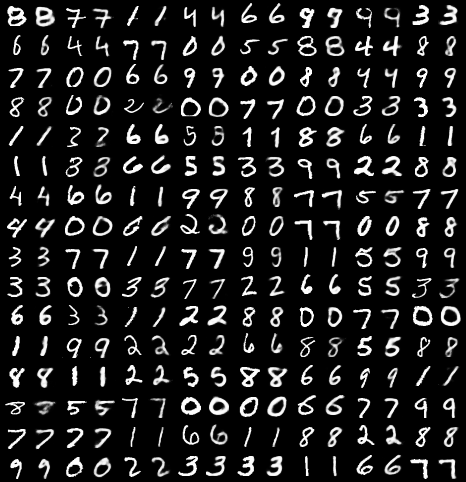 8 8 7 7 1 1 4 4 6 6 9 9 9 9 3 3
6 6 4 4 7 7 0 0 5 5 8 8 4 4 8 8
7 7 0 0 6 6 9 9 0 0 8 8 4 4 9 9
8 8 0 0 2 2 0 0 7 7 0 0 3 3 3 3
1 1 3 2 6 6 5 5 1 1 8 8 6 6 1 1
1 1 8 8 6 6 5 5 3 3 9 9 2 2 8 8
4 4 6 6 1 1 9 9 8 8 7 7 5 5 7 7
4 4 0 0 6 6 2 2 0 0 7 7 0 0 8 8
3 3 7 7 1 1 7 7 9 9 1 1 5 5 9 9
3 3 0 0 3 3 7 7 2 2 6 6 5 5 3 3
6 6 3 3 1 1 2 2 8 8 0 0 7 7 0 0
1 1 9 9 2 2 2 2 6 6 8 8 5 5 8 8
8 8 1 1 2 2 5 5 8 8 6 6 9 9 1 1
8 8 5 5 7 7 0 0 0 0 6 6 7 7 9 9
7 7 7 7 1 1 6 6 1 1 8 8 2 2 8 8
9 9 0 0 2 2 3 3 3 3 1 1 6 6 7 7